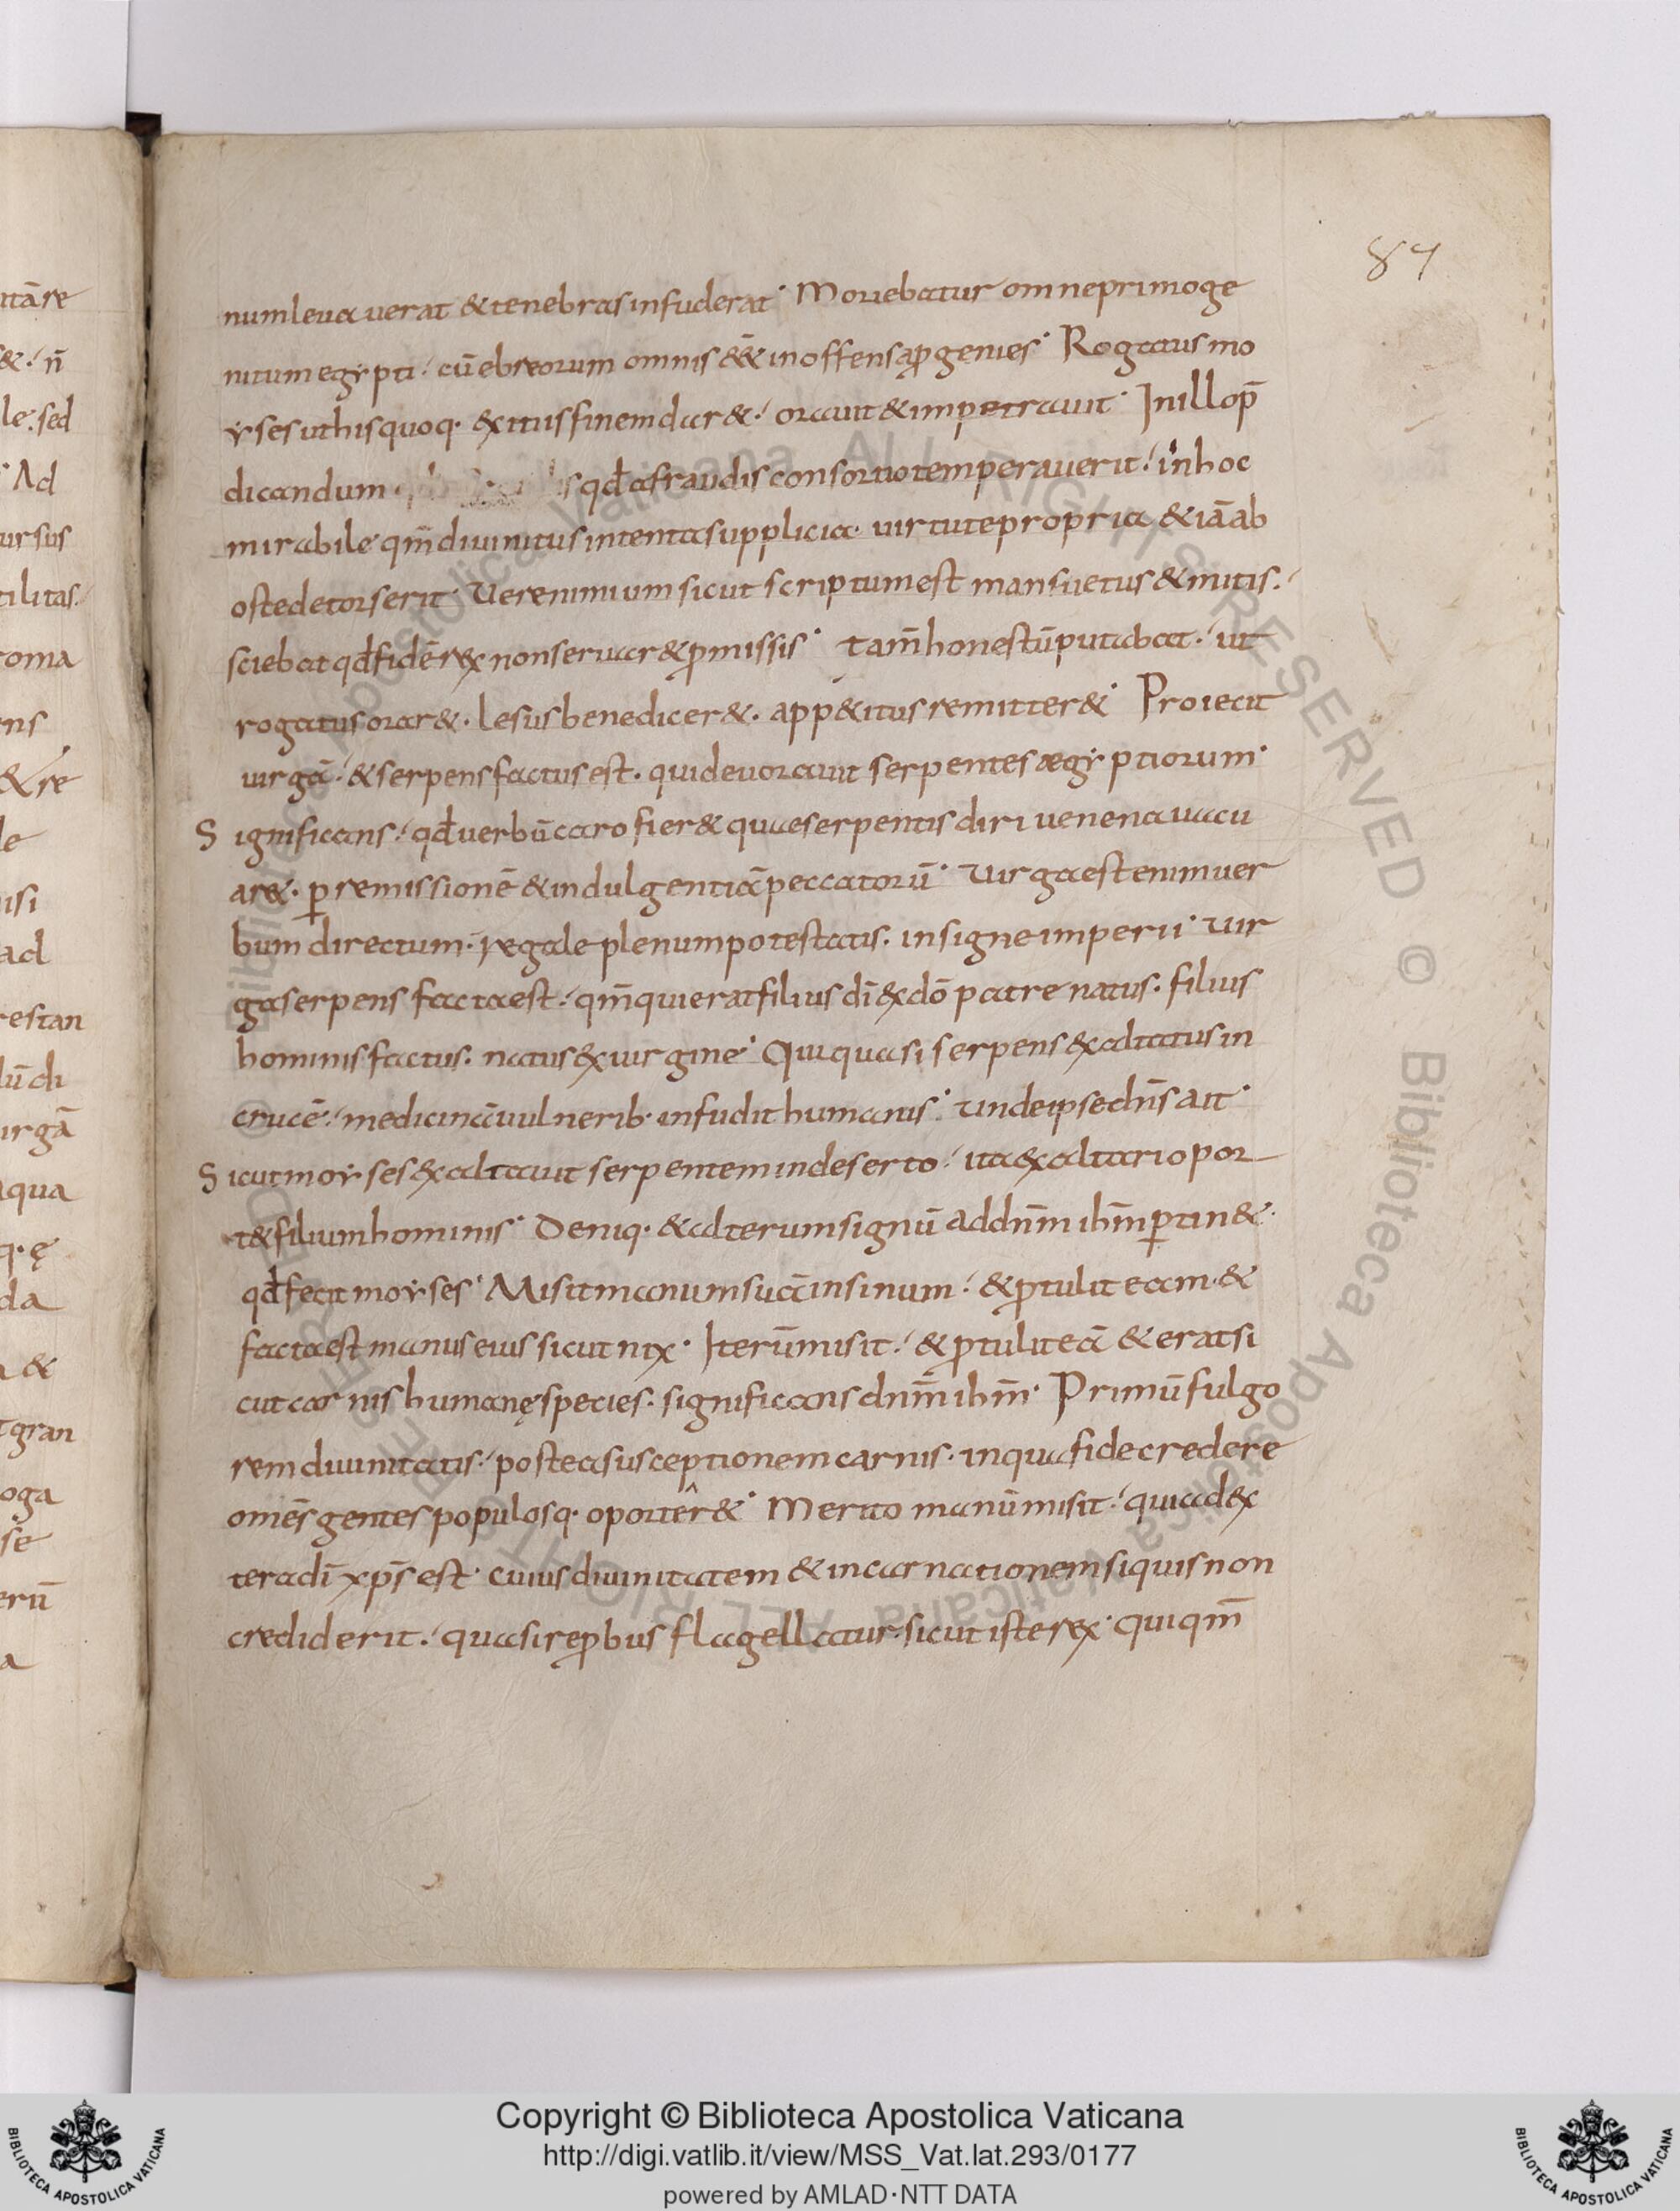 84
num leuauerat & tenebras infuderat· Moriebatur omne primoge
nitum egypti·/ cū ebreorum omnis e&& inoffensa ꝓgenies· Rogatus mo
yses ut his quoq· exitiis finem dar&·/ orauit & impetrauit· In illo p̄
dicandum s qđ a fraudis consortio temperauerit·/ in hoc
mirabile· qm̄ diuinitus intenta supplicia· uirtute propria & iā ab
oste detorserit· Vere nimium sicut scriptum est mansuetus & mitis·/
sciebat qđ fidē rex non seruar& ꝓmissis· tam̄ honestū putabat·/ ut
rogatus orar&· lesus benedicer&· app&itus remitter&· Proiecit
uirgā·/ & serpens factus est· qui deuorauit serpentes ægyptiorum·
Significans·/ qđ uerbū caro fier& quae serpentis diri uenena uacu
ar&· ꝑ remissionē & indulgentiā peccatorū· Virga est enim uer
bum directum· regale plenum potestatis· insigne imperii· Vir
ga serpens facta est·/ qm̄ qui erat filius dī ex dō patre natus· filius
hominis factus· natus ex uirgine· Qui quasi serpens exaltatus in
crucē·/ medicinā uulnerib· infudit humanis· Vnde ipse dn̄s ait·
Sicut moyses exaltauit serpentem in deserto·/ ita exaltari opor
t& filium hominis· Deniq· & alterum signū ad dnm̄ ihm̄ ꝑtin&·
qđ fecit moyses· Misit manum suā in sinum·/ & ꝓtulit eam· &
facta est manus eius sicut nix· Iterū misit·/ & ꝓtulit eā & erat si
cut carnis humanę species· significans dnm̄ ihm̄· Primū fulgo
rem diuinitatis·/ postea susceptionem carnis· in qua fide credere
omēs gentes populosq· oporter&· Merito manū misit·/ quia dex
tera dī xp̄s est· cuius diuinitatem & incarnationem si quis non
crediderit·/ quasi reꝓbus flagellatur· sicut iste rex· qui qm̄
Copyright © Biblioteca Apostolica Vaticana
http://digi.vatlib.it/view/MSS_Vat.lat.293/0177
powered by AMLAD·NTT DATA